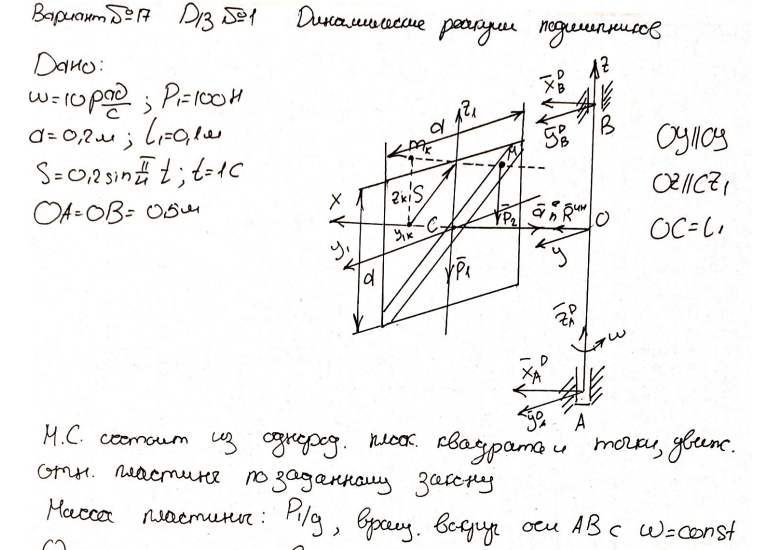 Вариант №17 D/З №1 Динамические реакции подшипников
Дано:
ω=10 рад/с ; P₁=100Н
a=0,2м ; l₁=0,1м
S=0,2 sin π/4 t ; t=1с
OA=OB= 0.5м
z
X̄ᴰ_B
ȳᴰ_B
B
z₁
a
m_k
M
z_k
S
P̄₂
x
y₁ₖ
C
ā
R̄ᶦᴺ
O
y₁
y
P̄₁
a
z̄ᴰ_A
ω
X̄ᴰ_A
ȳᴰ_A
A
Oy||Cy
Oz||Cz₁
OC=l₁
М.С. состоит из однород. плоск. квадрата и точки, движ.
отн. пластины по заданному закону
Масса пластины: P₁/g, вращ. вокруг оси AB с ω=const